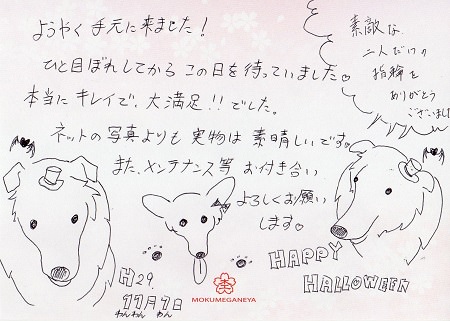 ようやく手元に来ました！
ひと目ぼれしてから この日を待っていました。
本当にキレイで、大満足!!でした。
ネットの写真よりも 実物は 素晴しいです。
また、メンテナンス等 お付き合い
よろしくお願い
します。
素敵な
二人だけの
指輪を
ありがとう
ございました
HAPPY
HALLOWEEN
H29.
11月1日
わんわん わん
MOKUMEGANEYA